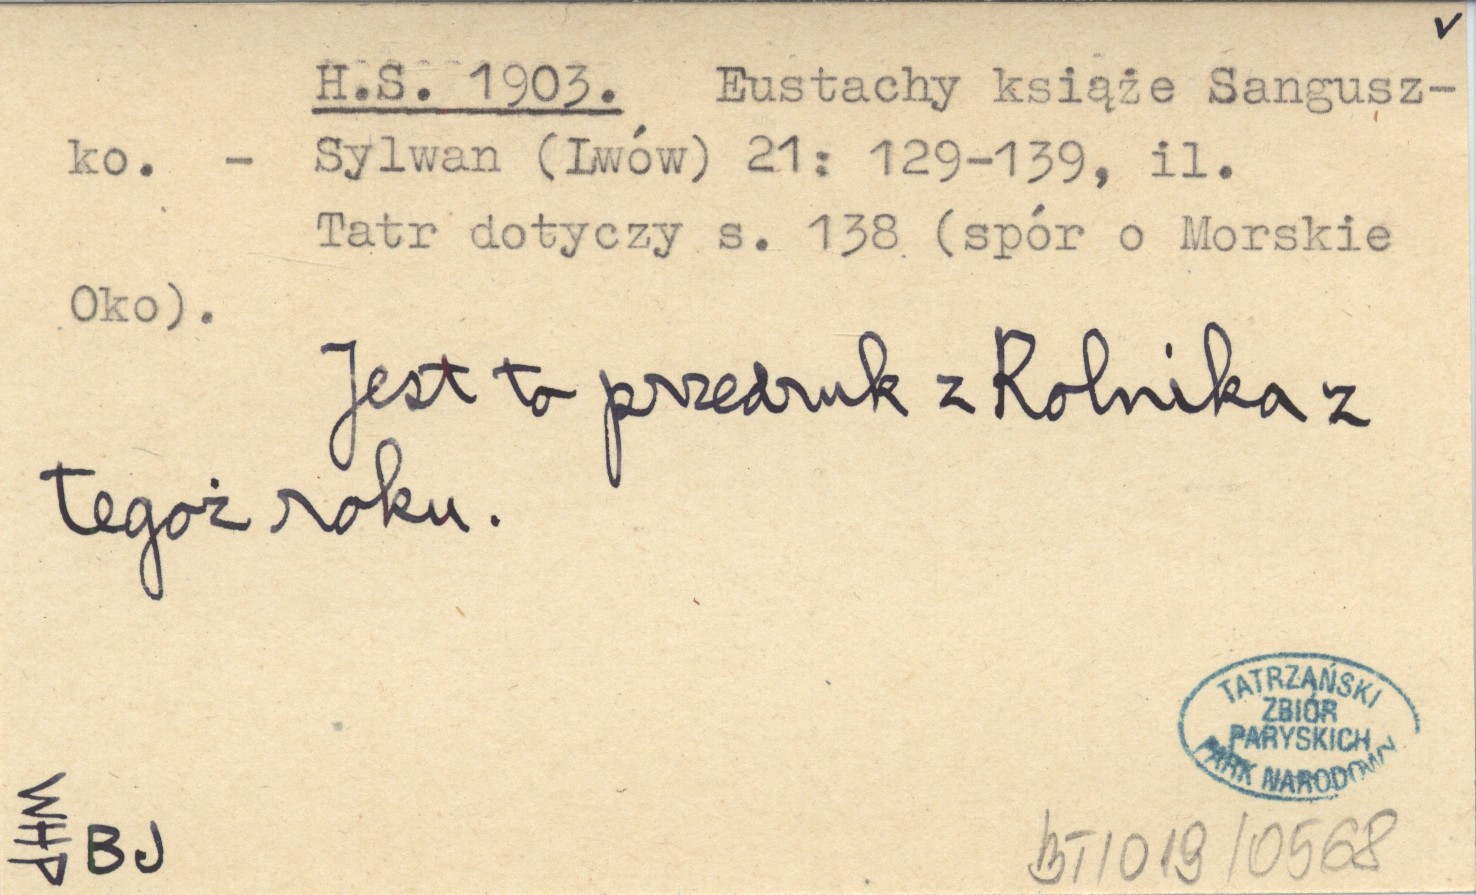 v
H.S. 1903. Eustachy książe Sangusz-
ko. - Sylwan (Lwów) 21: 129-139, il.
Tatr dotyczy s. 138 (spór o Morskie
Oko).
Jest to przedruk z Rolnika z
tegoż roku.
TATRZAŃSKI
ZBIÓR
PARYSKICH
PARK NARODOWY
WHP
BJ
BT/019/0568